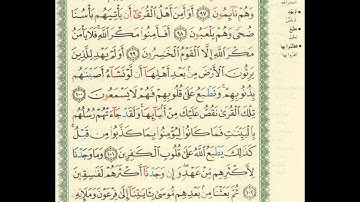 وَهُمْ نَآئِمُونَ ٩٧ أَوَأَمِنَ أَهْلُ ٱلْقُرَىٰٓ أَن يَأْتِيَهُم بَأْسُنَا
ضُحًى وَهُمْ يَلْعَبُونَ ٩٨ أَفَأَمِنُوا۟ مَكْرَ ٱللَّهِ فَلَا يَأْمَنُ
مَكْرَ ٱللَّهِ إِلَّا ٱلْقَوْمُ ٱلْخَـٰسِرُونَ ٩٩ أَوَلَمْ يَهْدِ لِلَّذِينَ
يَرِثُونَ ٱلْأَرْضَ مِنۢ بَعْدِ أَهْلِهَآ أَن لَّوْ نَشَآءُ أَصَبْنَـٰهُم
بِذُنُوبِهِمْ وَنَطْبَعُ عَلَىٰ قُلُوبِهِمْ فَهُمْ لَا يَسْمَعُونَ ١٠٠
تِلْكَ ٱلْقُرَىٰ نَقُصُّ عَلَيْكَ مِنْ أَنۢبَآئِهَا وَلَقَدْ جَآءَتْهُمْ رُسُلُهُم
بِٱلْبَيِّنَـٰتِ فَمَا كَانُوا۟ لِيُؤْمِنُوا۟ بِمَا كَذَّبُوا۟ مِن قَبْلُ
كَذَٰلِكَ يَطْبَعُ ٱللَّهُ عَلَىٰ قُلُوبِ ٱلْكَـٰفِرِينَ ١٠١ وَمَا وَجَدْنَا
لِأَكْثَرِهِم مِّنْ عَهْدٍ وَإِن وَجَدْنَآ أَكْثَرَهُمْ لَفَـٰسِقِينَ
١٠٢ ثُمَّ بَعَثْنَا مِنۢ بَعْدِهِم مُّوسَىٰ بِـَٔايَـٰتِنَآ إِلَىٰ فِرْعَوْنَ وَمَلَإِي۟هِۦ